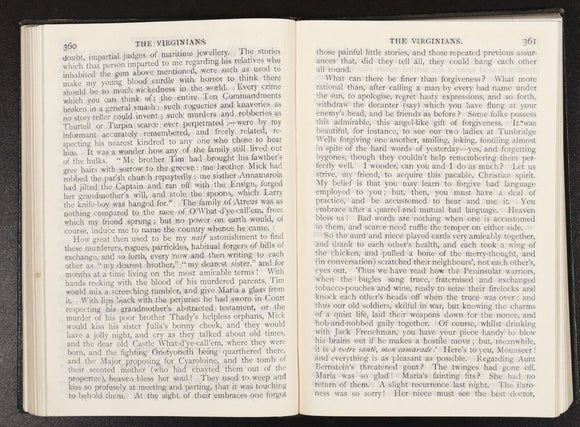 360
THE VIRGINIANS.
doubt, impartial judges of maritime jewellery. The stories
which that person imparted to me regarding his relatives who
inhabited the gem above mentioned, were such as used to
make my young blood curdle with horror to think there
should be so much wickedness in the world. Every crime
which you can think of; the entire Ten Commandments
broken in a general smash; such rogueries and knaveries as
no story-teller could invent; such murders and robberies as
Thurtell or Turpin scarce ever perpetrated;—were by my
informant accurately remembered, and freely related, re-
specting his nearest kindred to any one who chose to hear
him. It was a wonder how any of the family still lived out
of the hulks. "Me brother Tim had brought his fawther's
gree hairs with sorrow to the greeve; me brother Mick had
robbed the par'sh church repaytedly; me sisther Annamaroia
had jilted the Captain and ran off with the Ensign, forged
her grandmother's will, and stole the spoons, which Larry
the knife-boy was hanged for." The family of Atreus was as
nothing compared to the race of O'What-d'ye-call'em, from
which my friend sprung; but no power on earth would, of
course, induce me to name the country whence he came.
How great then used to be my naïf astonishment to find
these murderers, rogues, parricides, habitual forgers of bills of
exchange, and so forth, every now and then writing to each
other as "my dearest brother," "my dearest sister," and for
months at a time living on the most amicable terms! With
hands reeking with the blood of his murdered parents, Tim
would mix a screeching tumbler, and give Maria a glass from
it. With lips black with the perjuries he had sworn in Court
respecting his grandmother's abstracted testament, or the
murder of his poor brother Thady's helpless orphans, Mick
would kiss his sister Julia's bonny cheek, and they would
have a jolly night, and cry as they talked about old times,
and the dear old Castle What-d'ye-call'em, where they were
born, and the fighting Onetyoneth being quarthered there,
and the Major proposing for Cyaroloine, and the tomb of
their seented mother (who had chayted them out of the
propertee), heaven bless her soul! They used to weep and
kiss so profusely at meeting and parting, that it was touching
to behold them. At the sight of their embraces one forgot
THE VIRGINIANS.
361
those painful little stories, and those repeated previous assur-
ances that, did they tell all, they could hang each other
all round.
What can there be finer than forgiveness? What more
rational than, after calling a man by every bad name under
the sun, to apologise, regret hasty expressions, and so forth,
withdraw the decanter (say) which you have flung at your
enemy's head, and be friends as before? Some folks possess
this admirable, this angel-like gift of forgiveness. It was
beautiful, for instance, to see our two ladies at Tunbridge
Wells forgiving one another, smiling, joking, fondling almost
in spite of the hard words of yesterday—yes, and forgetting
bygones, though they couldn't help remembering them per-
fectly well. I wonder, can you and I do as much? Let us
strive, my friend, to acquire this pacable, Christian spirit.
My belief is that you may learn to forgive bad language
employed to you; but, then, you must have a deal of
practice, and be accustomed to hear and use it. You
embrace after a quarrel and mutual bad language. Heaven
bless us! Bad words are nothing when one is accustomed
to them, and scarce need ruffle the temper on either side.
So the aunt and niece played cards very amicably together,
and drank to each other's health, and each took a wing of
the chicken, and pulled a bone of the merry-thought, and
(in conversation) scratched their neighbours', not each other's,
eyes out. Thus we have read how the Peninsular warriors,
when the bugles sang truce, fraternised and exchanged
tobacco-pouches and wine, ready to seize their firelocks and
knock each other's heads off when the truce was over; and
thus our old soldiers, skilful in war, but knowing the charms
of a quiet life, laid their weapons down for the nonce, and
hob-and-nobbed gaily together. Of course, whilst drinking
with Jack Frenchman, you have your piece handy to blow
his brains out if he makes a hostile move; but, meanwhile,
à votre santé, mon camarade! Here's to you, Mounseer!
and everything is as pleasant as possible. Regarding Aunt
Bernstein's threatened gout? The twinges had gone off.
Maria was so glad! Maria's fainting fits? She had no
return of them. A slight recurrence last night. The Baro-
ness was so sorry! Her niece must see the best doctor,